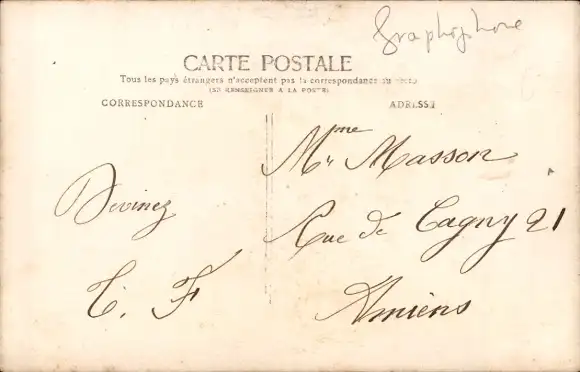 Graphophone
CARTE POSTALE
Tous les pays étrangers n'acceptent pas la correspondance au recto
(SE RENSEIGNER A LA POSTE)
CORRESPONDANCE
ADRESSE
Devinez
T. F
Mr Mme Masson
Rue de Cagny 21
Amiens